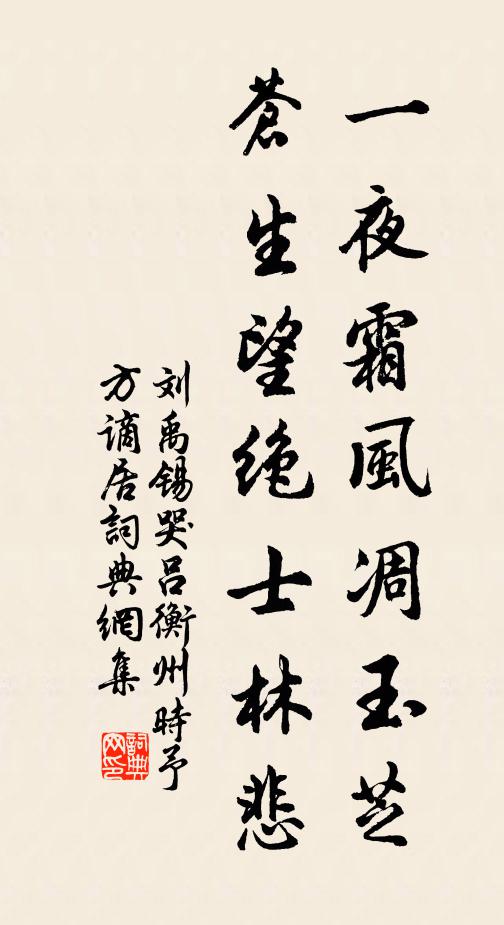 一夜霜風凋玉芝
蒼生望绝士林悲
刘禹锡哭吕衡州時予
方謫居詞典網集
詞典
网印